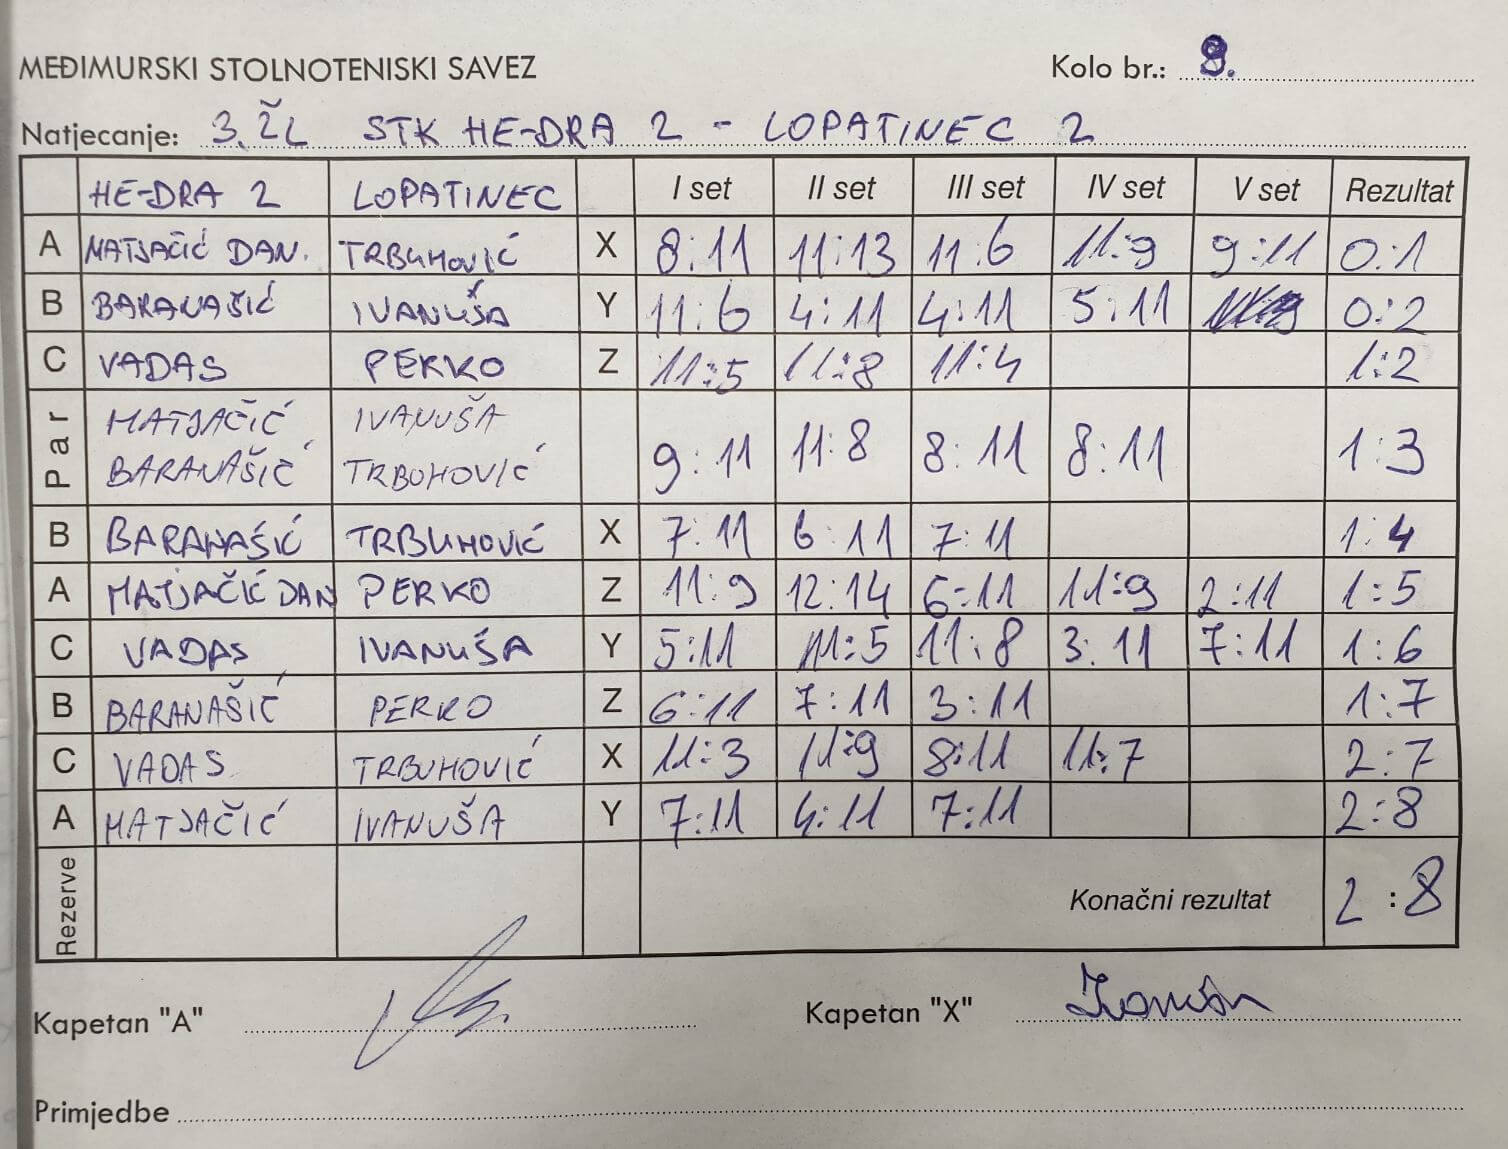 MEĐIMURSKI STOLNOTENISKI SAVEZ Kolo br.: 9.
Natjecanje: 3.ŽL STK HE-DRA 2 - LOPATINEC 2
HE-DRA 2 LOPATINEC I set II set III set IV set V set Rezultat
A MATJAČIĆ DAN. TRBUHOVIĆ X 8:11 11:13 11:6 11:9 9:11 0:1
B BARANAŠIĆ IVANUŠA Y 11:6 4:11 4:11 5:11 0:2
C VADAS PERKO Z 11:5 11:8 11:4 1:2
Par MATJAČIĆ IVANUŠA
BARANAŠIĆ TRBUHOVIĆ 9:11 11:8 8:11 8:11 1:3
B BARANAŠIĆ TRBUHOVIĆ X 7:11 6:11 7:11 1:4
A MATJAČIĆ DAN PERKO Z 11:9 12:14 6:11 11:9 2:11 1:5
C VADAS IVANUŠA Y 5:11 11:5 11:8 3:11 7:11 1:6
B BARANAŠIĆ PERKO Z 6:11 7:11 3:11 1:7
C VADAS TRBUHOVIĆ X 11:3 11:9 8:11 11:7 2:7
A MATJAČIĆ IVANUŠA Y 7:11 4:11 7:11 2:8
Rezerve Konačni rezultat 2:8
Kapetan "A" Kapetan "X"
Primjedbe